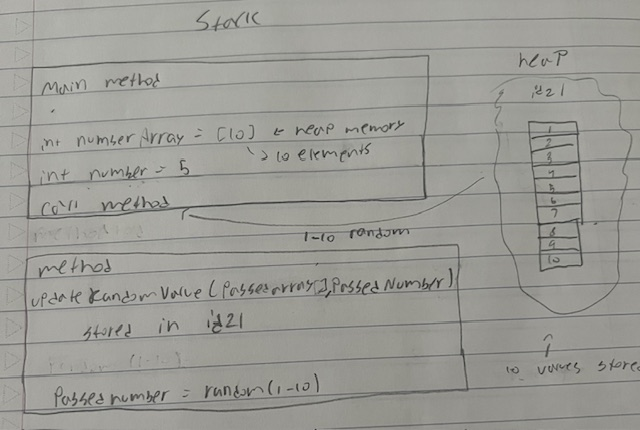 Stack
Main method
int number Array = [10] ← heap memory
↳ 10 elements
int number = 5
Call method
1-10 random
method
update RandomValue (Passedarray[], Passed Number)
stored in id21
Passed number = random(1-10)
heap
id21
1
2
3
4
5
6
7
8
9
10
10 values stored